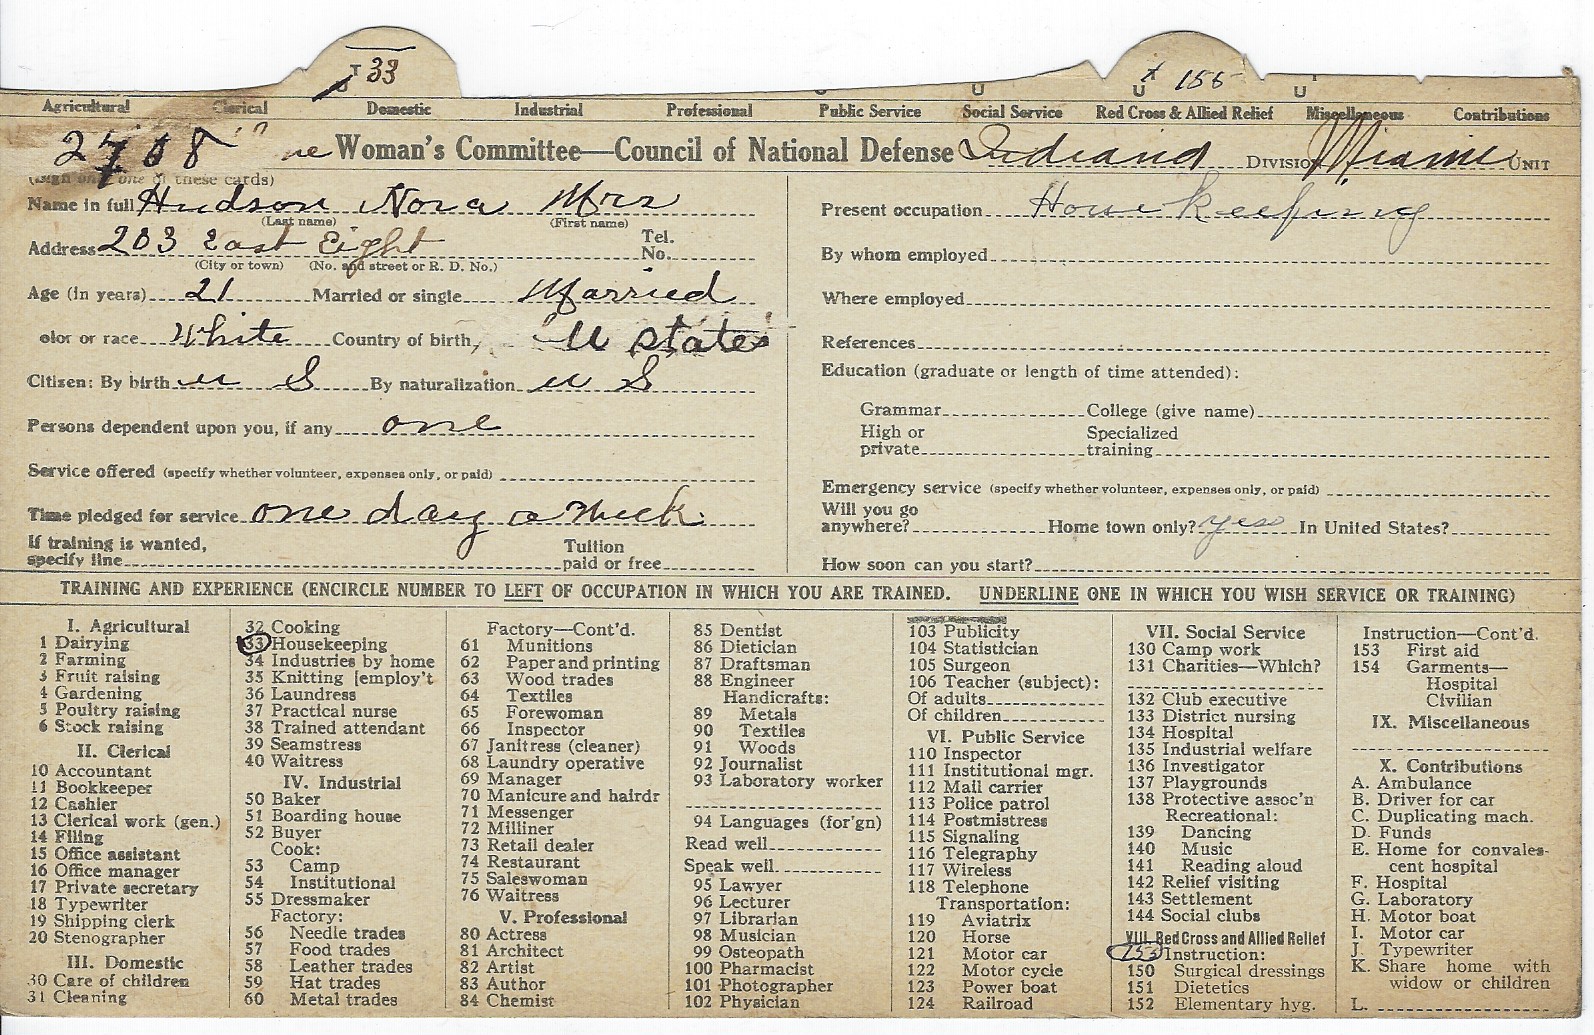 T 33
T 155
U U U
Agricultural Clerical Domestic Industrial Professional Public Service Social Service Red Cross & Allied Relief Miscellaneous Contributions
Woman's Committee—Council of National Defense Indiana DIVISION Miami UNIT
(Sign only one of these cards)
Name in full Hudson Nora Mrs
(Last name) (First name)
Address 203 East Eight Tel. No.
(City or town) (No. and street or R. D. No.)
Age (in years) 21 Married or single Married
olor or race White Country of birth, U States
Citizen: By birth U S By naturalization U S
Persons dependent upon you, if any one
Service offered (specify whether volunteer, expenses only, or paid)
Time pledged for service one day a week
If training is wanted, specify line Tuition paid or free
Present occupation Housekeeping
By whom employed
Where employed
References
Education (graduate or length of time attended):
Grammar College (give name)
High or private Specialized training
Emergency service (specify whether volunteer, expenses only, or paid)
Will you go anywhere? Home town only? yes In United States?
How soon can you start?
TRAINING AND EXPERIENCE (ENCIRCLE NUMBER TO LEFT OF OCCUPATION IN WHICH YOU ARE TRAINED. UNDERLINE ONE IN WHICH YOU WISH SERVICE OR TRAINING)
I. Agricultural
1 Dairying
2 Farming
3 Fruit raising
4 Gardening
5 Poultry raising
6 Stock raising
II. Clerical
10 Accountant
11 Bookkeeper
12 Cashier
13 Clerical work (gen.)
14 Filing
15 Office assistant
16 Office manager
17 Private secretary
18 Typewriter
19 Shipping clerk
20 Stenographer
III. Domestic
30 Care of children
31 Cleaning
32 Cooking
33 Housekeeping
34 Industries by home
35 Knitting [employ't
36 Laundress
37 Practical nurse
38 Trained attendant
39 Seamstress
40 Waitress
IV. Industrial
50 Baker
51 Boarding house
52 Buyer
Cook:
53 Camp
54 Institutional
55 Dressmaker
Factory:
56 Needle trades
57 Food trades
58 Leather trades
59 Hat trades
60 Metal trades
Factory—Cont'd.
61 Munitions
62 Paper and printing
63 Wood trades
64 Textiles
65 Forewoman
66 Inspector
67 Janitress (cleaner)
68 Laundry operative
69 Manager
70 Manicure and hairdr
71 Messenger
72 Milliner
73 Retail dealer
74 Restaurant
75 Saleswoman
76 Waitress
V. Professional
80 Actress
81 Architect
82 Artist
83 Author
84 Chemist
85 Dentist
86 Dietician
87 Draftsman
88 Engineer
Handicrafts:
89 Metals
90 Textiles
91 Woods
92 Journalist
93 Laboratory worker
94 Languages (for'gn)
Read well
Speak well
95 Lawyer
96 Lecturer
97 Librarian
98 Musician
99 Osteopath
100 Pharmacist
101 Photographer
102 Physician
103 Publicity
104 Statistician
105 Surgeon
106 Teacher (subject):
Of adults
Of children
VI. Public Service
110 Inspector
111 Institutional mgr.
112 Mail carrier
113 Police patrol
114 Postmistress
115 Signaling
116 Telegraphy
117 Wireless
118 Telephone
Transportation:
119 Aviatrix
120 Horse
121 Motor car
122 Motor cycle
123 Power boat
124 Railroad
VII. Social Service
130 Camp work
131 Charities—Which?
132 Club executive
133 District nursing
134 Hospital
135 Industrial welfare
136 Investigator
137 Playgrounds
138 Protective assoc'n
Recreational:
139 Dancing
140 Music
141 Reading aloud
142 Relief visiting
143 Settlement
144 Social clubs
VIII. Red Cross and Allied Relief
155 Instruction:
150 Surgical dressings
151 Dietetics
152 Elementary hyg.
Instruction—Cont'd.
153 First aid
154 Garments—
Hospital
Civilian
IX. Miscellaneous
X. Contributions
A. Ambulance
B. Driver for car
C. Duplicating mach.
D. Funds
E. Home for convales-
cent hospital
F. Hospital
G. Laboratory
H. Motor boat
I. Motor car
J. Typewriter
K. Share home with
widow or children
L.